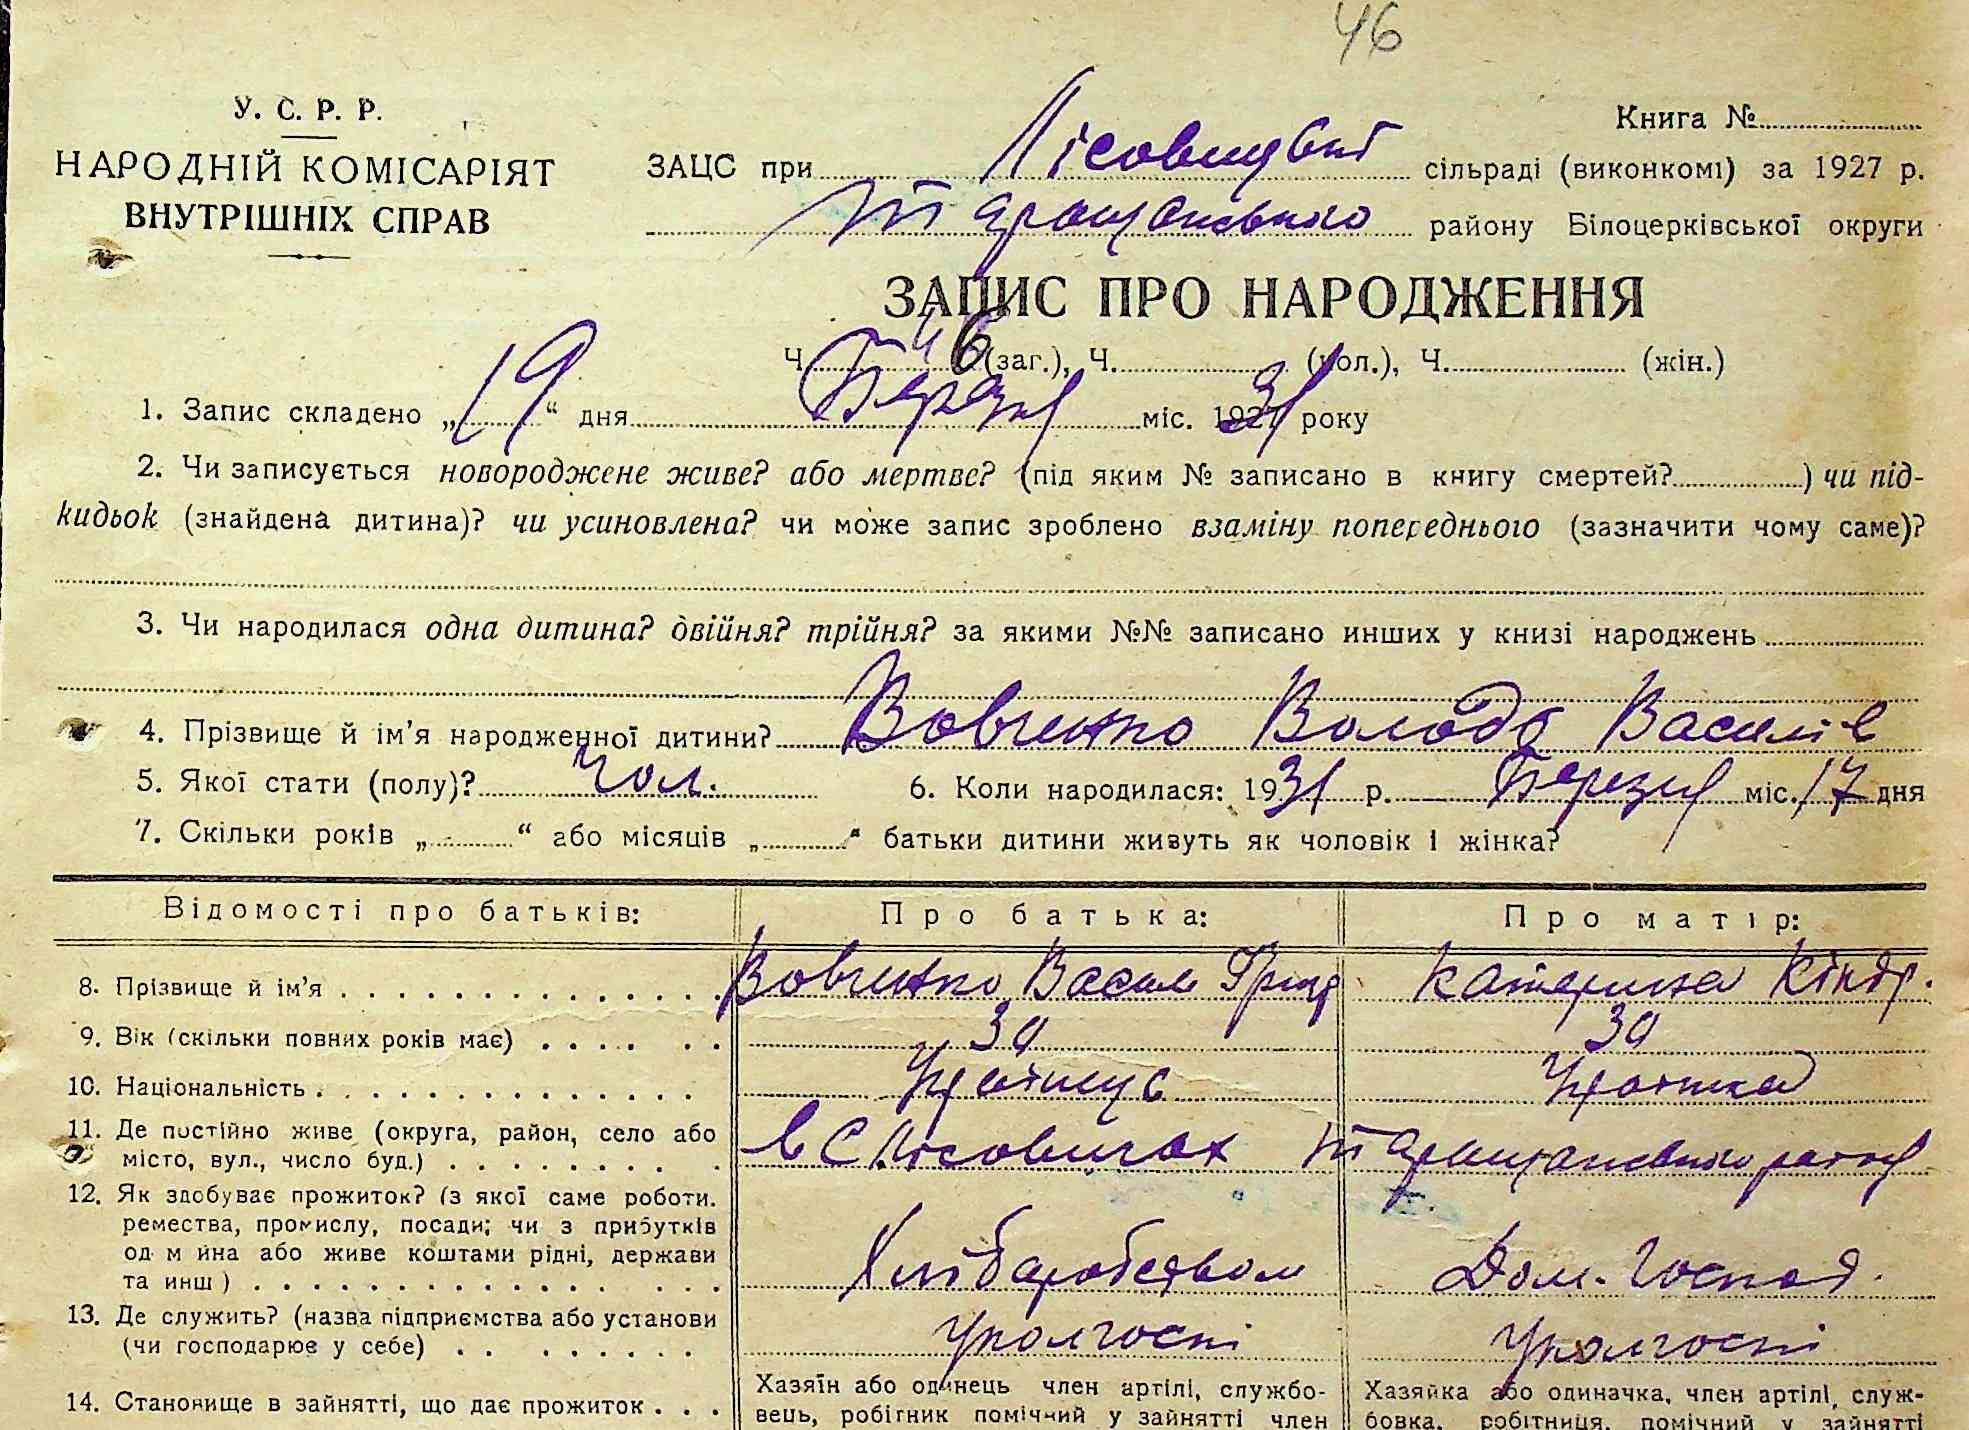 46
У. С. Р. Р.
НАРОДНІЙ КОМІСАРІЯТ
ВНУТРІШНІХ СПРАВ
Книга №
ЗАЦС при Лісовицькій сільраді (виконкомі) за 1927 р.
Таращанського району Білоцерківської округи
ЗАПИС ПРО НАРОДЖЕННЯ
Ч. 46 (заг.), Ч. (чол.), Ч. (жін.)
1. Запис складено „19“ дня Березня міс. 1931 року
2. Чи записується новороджене живе? або мертве? (під яким № записано в книгу смертей? ) чи під-
кидьок (знайдена дитина)? чи усиновлена? чи може запис зроблено взаміну попереднього (зазначити чому саме)?
3. Чи народилася одна дитина? двійня? трійня? за якими №№ записано инших у книзі народжень
4. Прізвище й ім'я народженної дитини? Вовченко Володя Василів
5. Якої стати (полу)? Чол. 6. Коли народилася: 1931 р. Березня міс. 17 дня
7. Скільки років „ “ або місяців „ “ батьки дитини живуть як чоловік і жінка?
Відомості про батьків: Про батька: Про матір:
8. Прізвище й ім'я . . . . . . . . . . . . . . Вовченко Василь Григ Катерина Кіндр.
9. Вік (скільки повних років має) . . . . . . 30 30
10. Національність . . . . . . . . . . . . . . Українець Українка
11. Де постійно живе (округа, район, село або
місто, вул., число буд.) . . . . . . . . . в С. Лісовичах Таращанського району
12. Як здобуває прожиток? (з якої саме роботи.
ремества, промислу, посади; чи з прибутків
од м йна або живе коштами рідні, держави
та инш) . . . . . . . . . . . . . . . . Хліборобством Дом. Господ.
13. Де служить? (назва підприємства або установи
(чи господарює у себе) . . . . . . . . У колгоспі У колгоспі
14. Становище в зайнятті, що дає прожиток . . .
Хазяїн або одинець член артілі, службо-
вець, робітник помічний у зайнятті член
Хазяйка або одиначка, член артілі, служ-
бовка, робітниця, помічний у зайнятті